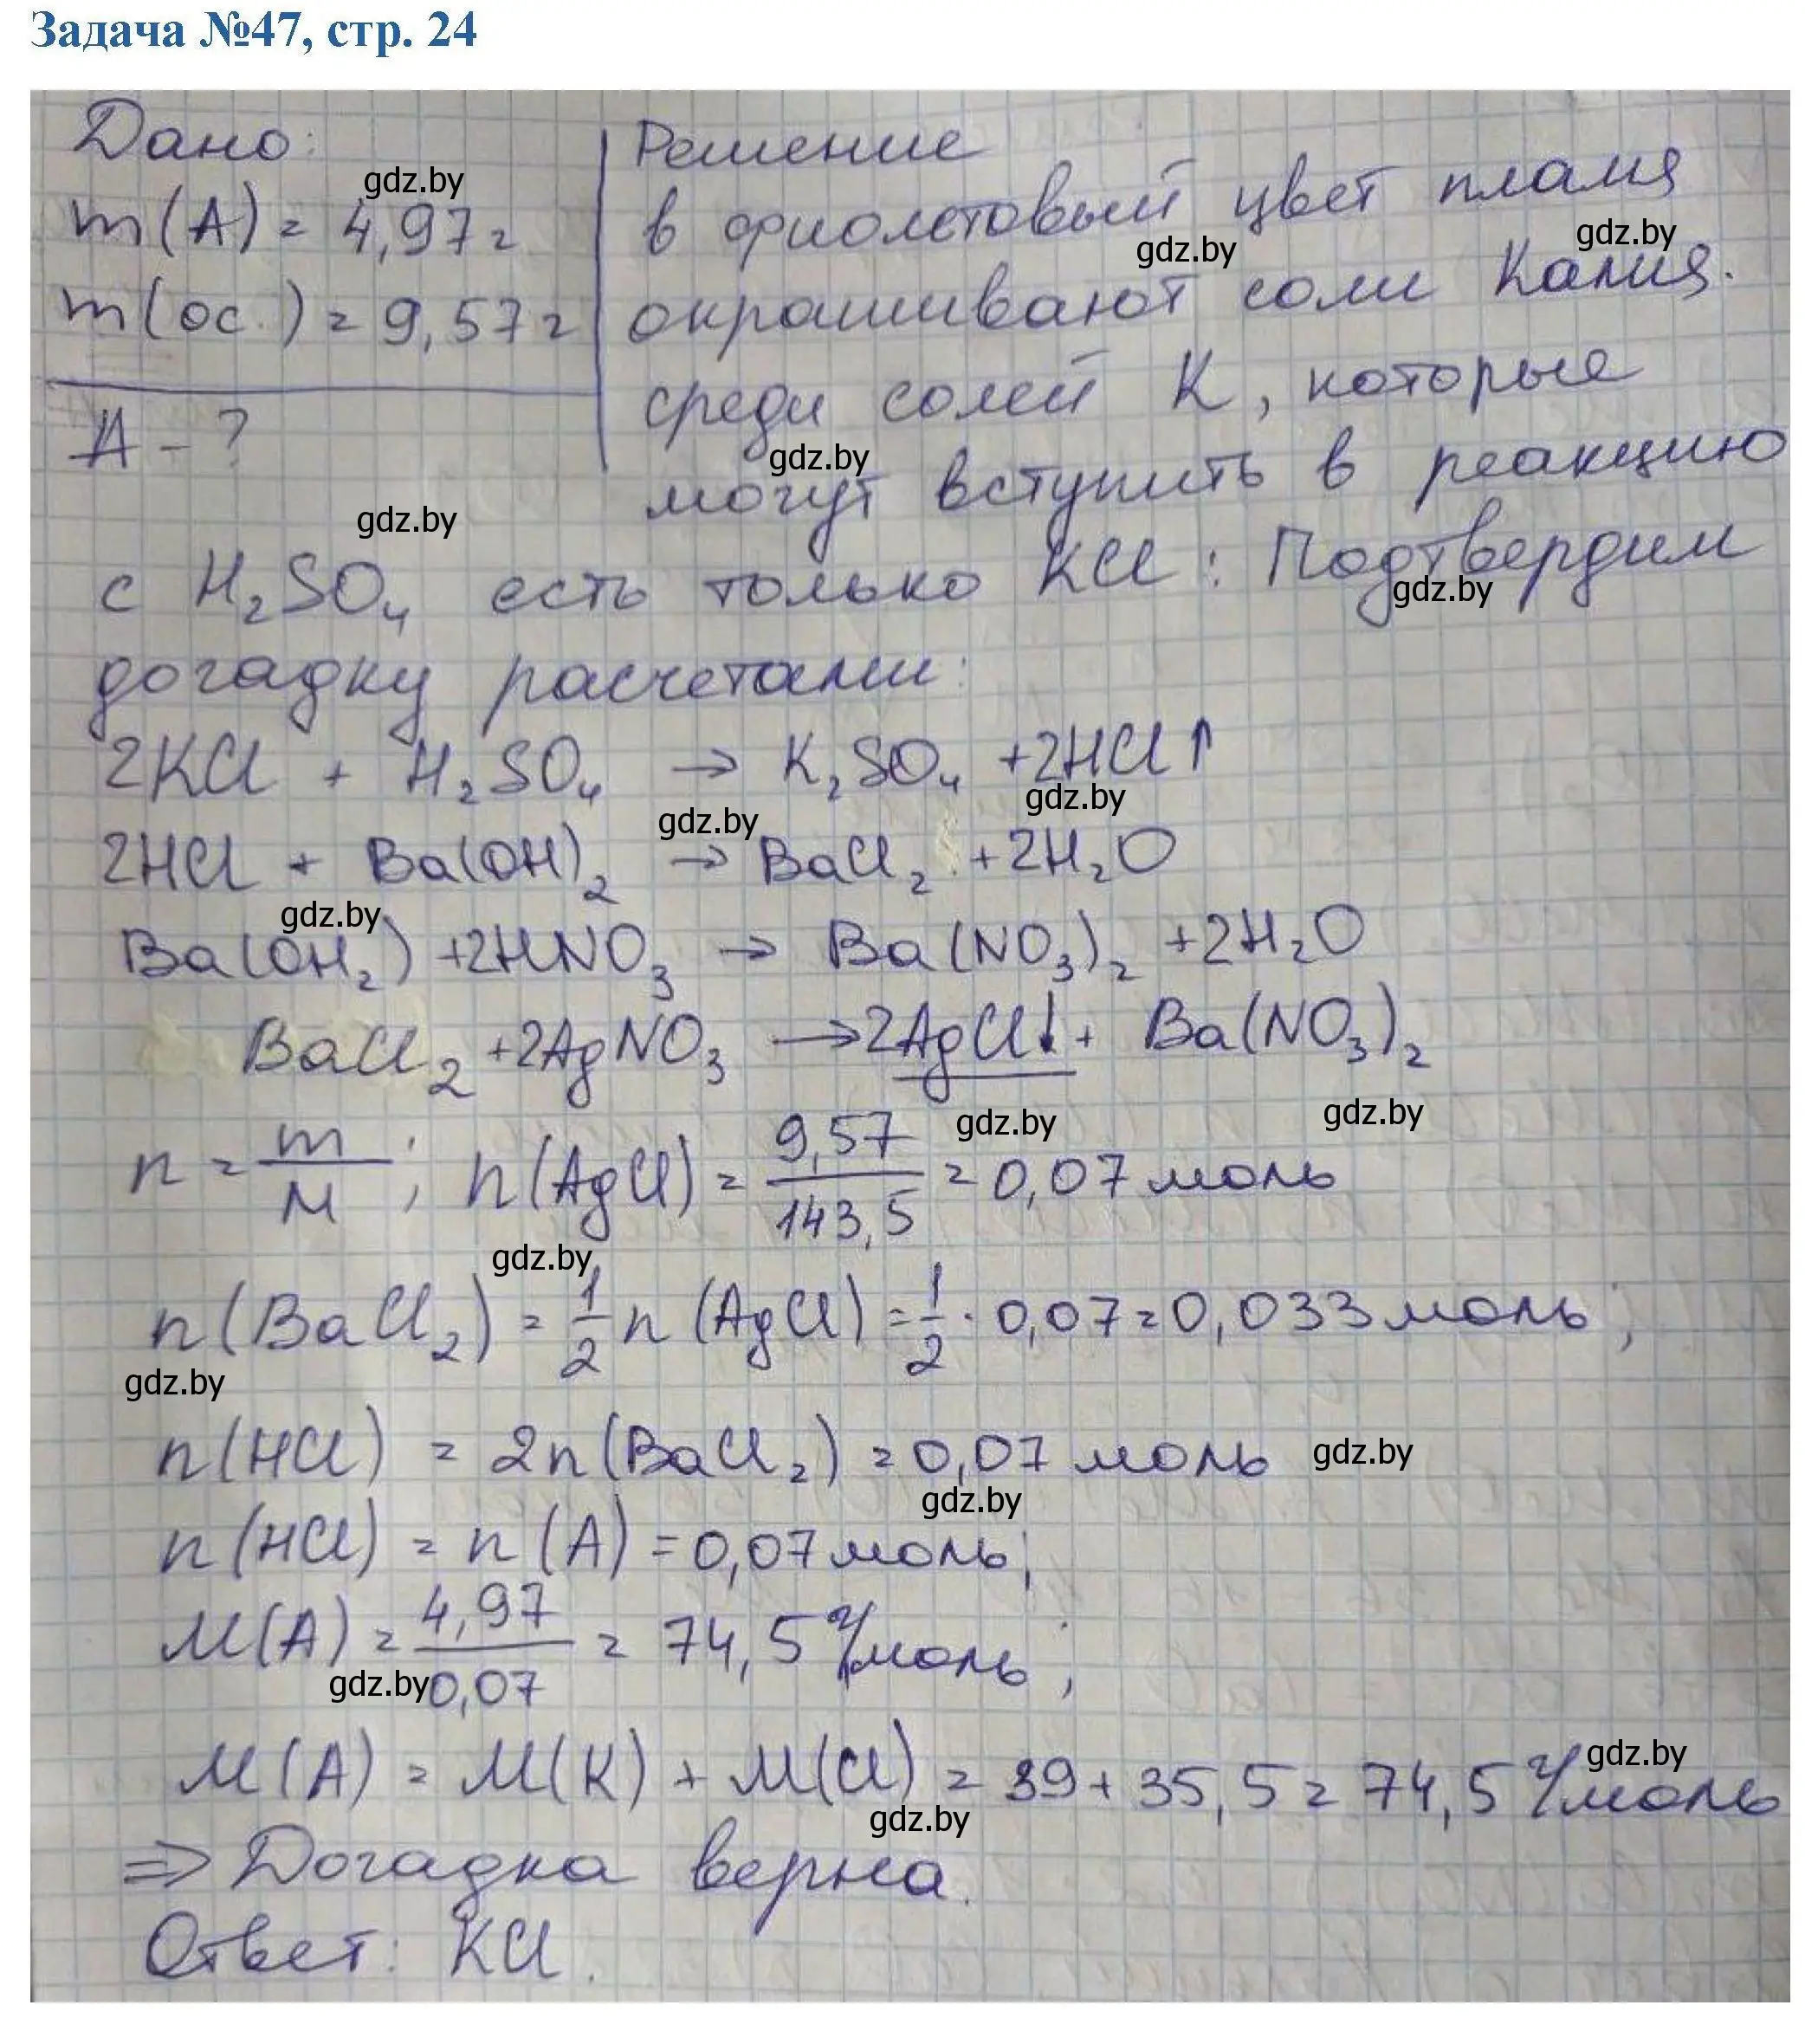 Задача №47, стр. 24
Дано:
gdz.by
m(A) = 4,97 г
m(ос.) = 9,57 г
A - ?
gdz.by
Решение
в фиолетовый цвет пламя
gdz.by gdz.by
окрашивают соли калия.
среди солей K, которые
gdz.by
могут вступить в реакцию
с H₂SO₄ есть только KCl: Подтвердим
gdz.by
догадку расчетами:
2KCl + H₂SO₄ → K₂SO₄ + 2HCl↑
gdz.by gdz.by
2HCl + Ba(OH)₂ → BaCl₂ + 2H₂O
gdz.by
Ba(OH₂) + 2HNO₃ → Ba(NO₃)₂ + 2H₂O
BaCl₂ + 2AgNO₃ → 2AgCl↓ + Ba(NO₃)₂
gdz.by gdz.by
n = m/M; n(AgCl) = 9,57/143,5 = 0,07 моль
gdz.by
n(BaCl₂) = 1/2 n(AgCl) = 1/2 · 0,07 = 0,033 моль;
gdz.by
n(HCl) = 2n(BaCl₂) = 0,07 моль gdz.by
gdz.by
n(HCl) = n(A) = 0,07 моль;
M(A) = 4,97/0,07 = 74,5 г/моль;
gdz.by
M(A) = M(K) + M(Cl) = 39 + 35,5 = 74,5 г/моль
gdz.by gdz.by
⇒ Догадка верна.
Ответ: KCl.